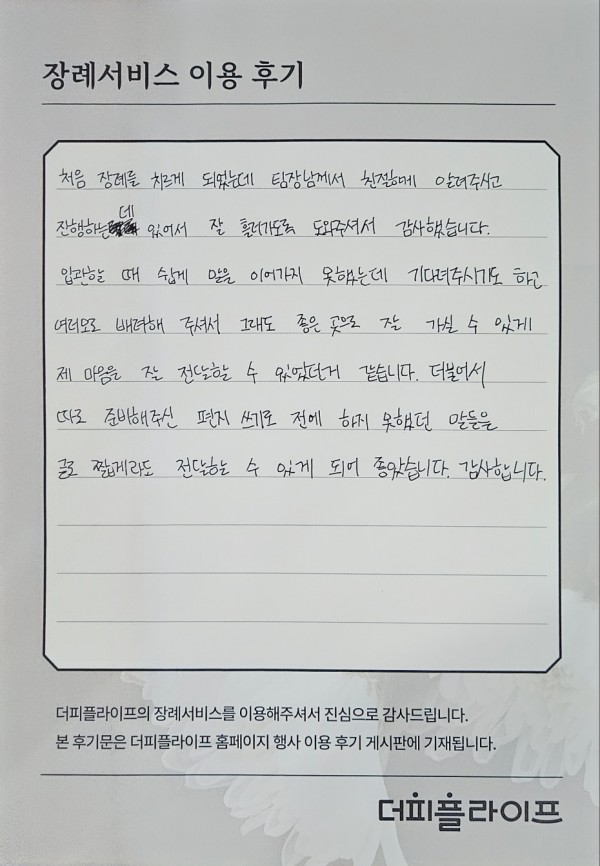 장례서비스 이용 후기
처음 장례를 치르게 되었는데 팀장님께서 친절하게 알려주시고
진행하는데 있어서 잘 흘러가도록 도와주셔서 감사했습니다.
입관할 때 쉽게 말을 이어가지 못했는데 기다려주시기도 하고
여러모로 배려해 주셔서 그래도 좋은 곳으로 잘 가실 수 있게
제 마음을 잘 전달할 수 있었던거 같습니다. 더불어서
따로 준비해주신 편지 쓰기로 전에 하지 못했던 말들을
글로 짧게라도 전달할 수 있게 되어 좋았습니다. 감사합니다.
더피플라이프의 장례서비스를 이용해주셔서 진심으로 감사드립니다.
본 후기문은 더피플라이프 홈페이지 행사 이용 후기 게시판에 기재됩니다.
더피플라이프